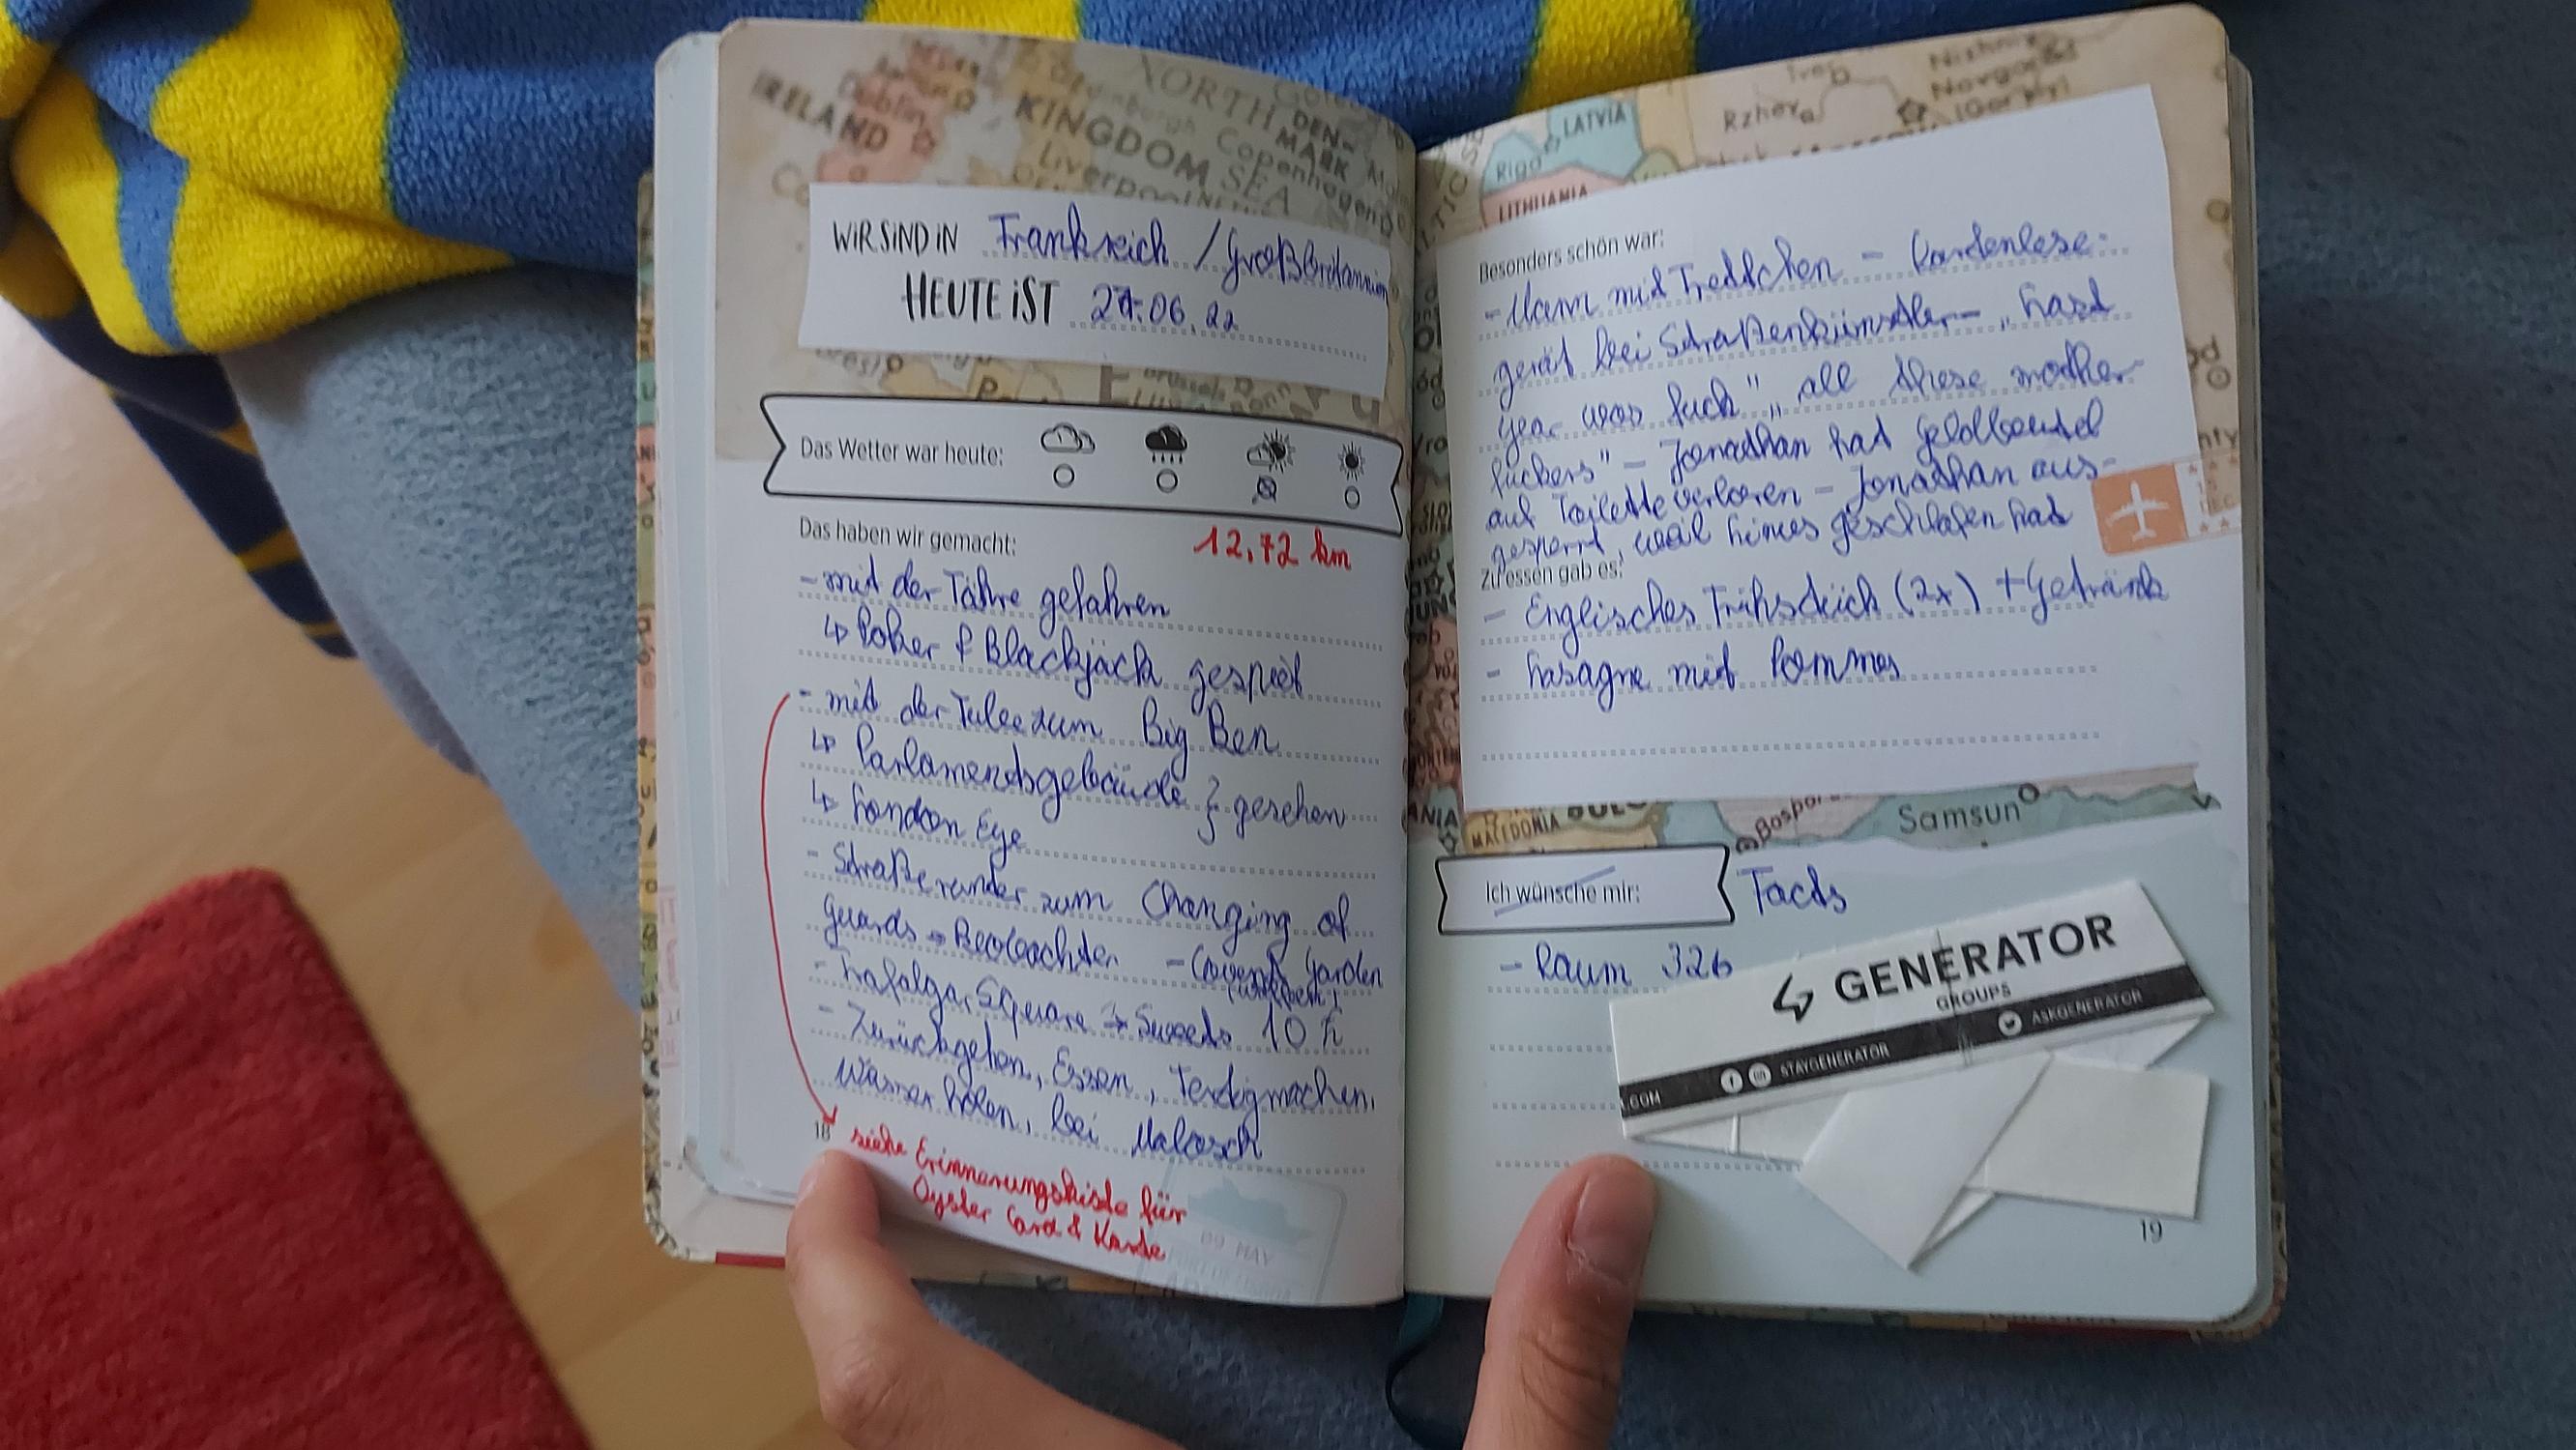 IRELAND
Dublin
KINGDOM
Liverpool
NORTH
SEA
DEN-
MARK
Copenhagen
WIR SIND IN Frankreich / Großbritannien
HEUTE IST 27.06.22
Das Wetter war heute:
Das haben wir gemacht:
12,72 km
- mit der Fähre gefahren
↳ Poker & Blackjack gespielt
- mit der Tube zum Big Ben
↳ Parlamentsgebäude } gesehen
↳ London Eye
- Straße runter zum Changing of
guards → Beobachten - Covent Garden
- Trafalgar Square → Sweets 10 £
- Zurückgehen, Essen, Fertigmachen,
Wasser holen, bei
18
siehe Erinnerungskiste für
Oyster Card & Karte
09 MAY
LATVIA
Riga
LITHUANIA
Rzhev
Nizhniy
Novgorod
(Gor'kiy)
Besonders schön war:
- Mann mit - Kartenlese-
gerät bei Straßenkünstler - „hard
year was fuck" „all these mother
fuckers" - Jonathan hat Geldbeutel
auf Toilette verloren - Jonathan aus-
gesperrt, weil geschlafen hat
Zu essen gab es:
- Englisches Frühstück (2x) + Getränk
- Lasagne mit Pommes
MACEDONIA
Bospor
Samsun
Ich wünsche mir: Facts
- Raum 326
GENERATOR
GROUPS
.COM
STAYGENERATOR
ASKGENERATOR
19